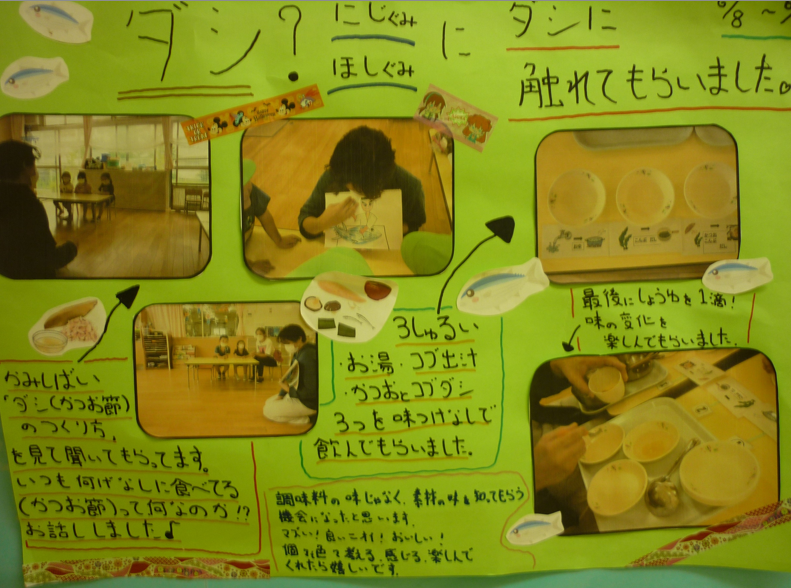 ダシ?
にじぐみ
ほしぐみ
に
ダシに
触れてもらいました。
6/8～
かみしばい
「ダシ(かつお節)
のつくり方」
を見て聞いてもらってます。
いつも何げなしに食べてる
(かつお節)って何なのか!?
お話ししました♪
3しゅるい
・お湯・コブ出汁
・かつおとコブダシ
3つを味つけなしで
飲んでもらいました。
最後にしょうゆを1滴!
味の変化を
楽しんでもらいました。
調味料の味じゃなく、素材の味を知ってもらう
機会になったと思います。
マズい!良いニオイ!おいしい!
個々色々考える、感じる、楽しんで
くれたら嬉しいです。